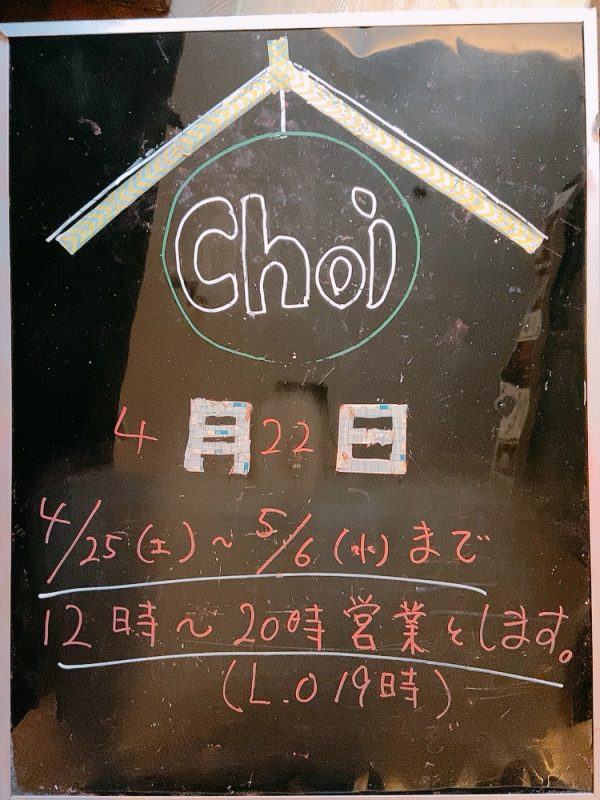 Choi
4月22日
4/25(土)~5/6(水)まで
12時~20時営業とします。
(L.O 19時)